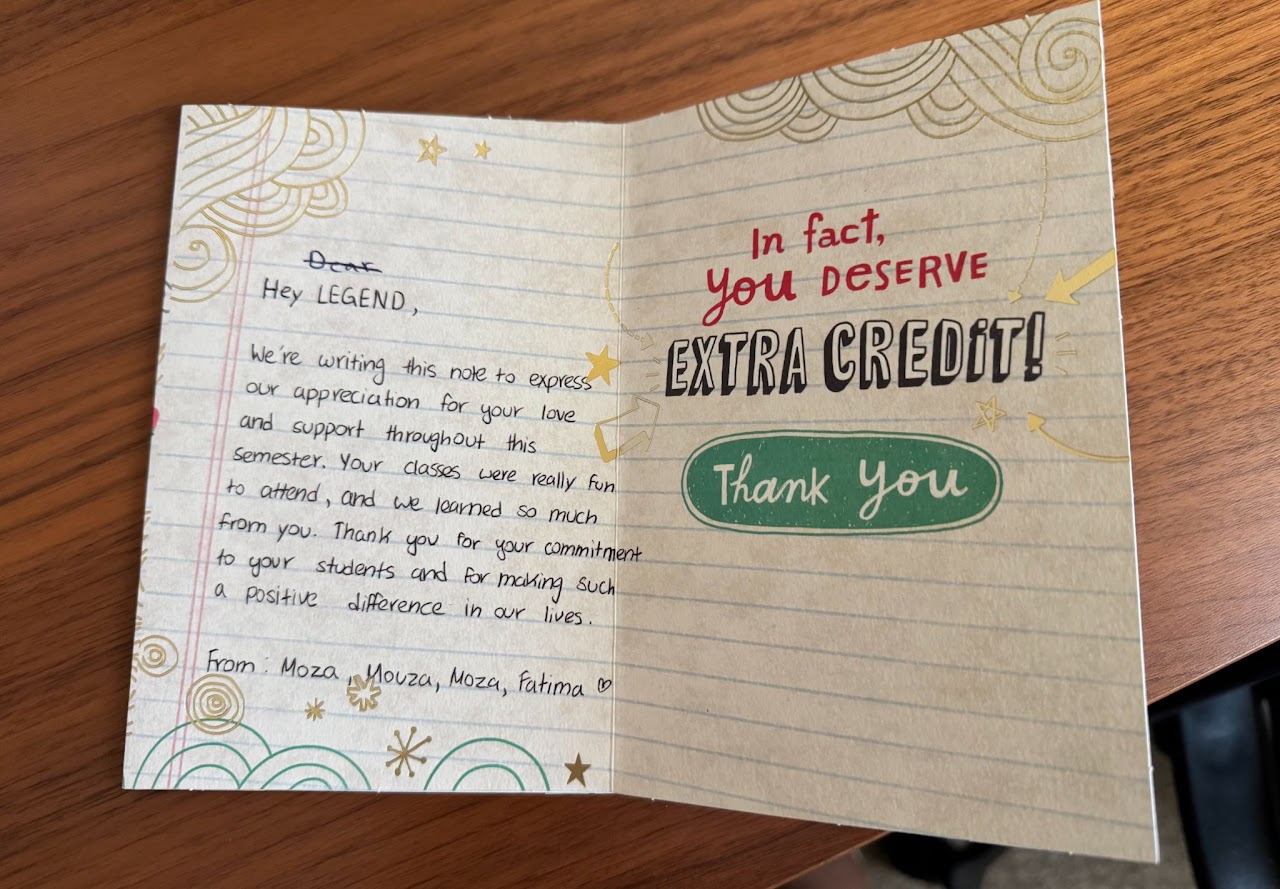 Dear
Hey LEGEND,
We're writing this note to express
our appreciation for your love
and support throughout this
semester. Your classes were really fun
to attend, and we learned so much
from you. Thank you for your commitment
to your students and for making such
a positive difference in our lives.
From: Moza, Mouza, Moza, Fatima ♡
In fact,
you DESERVE
EXTRA CREDIT!
Thank you